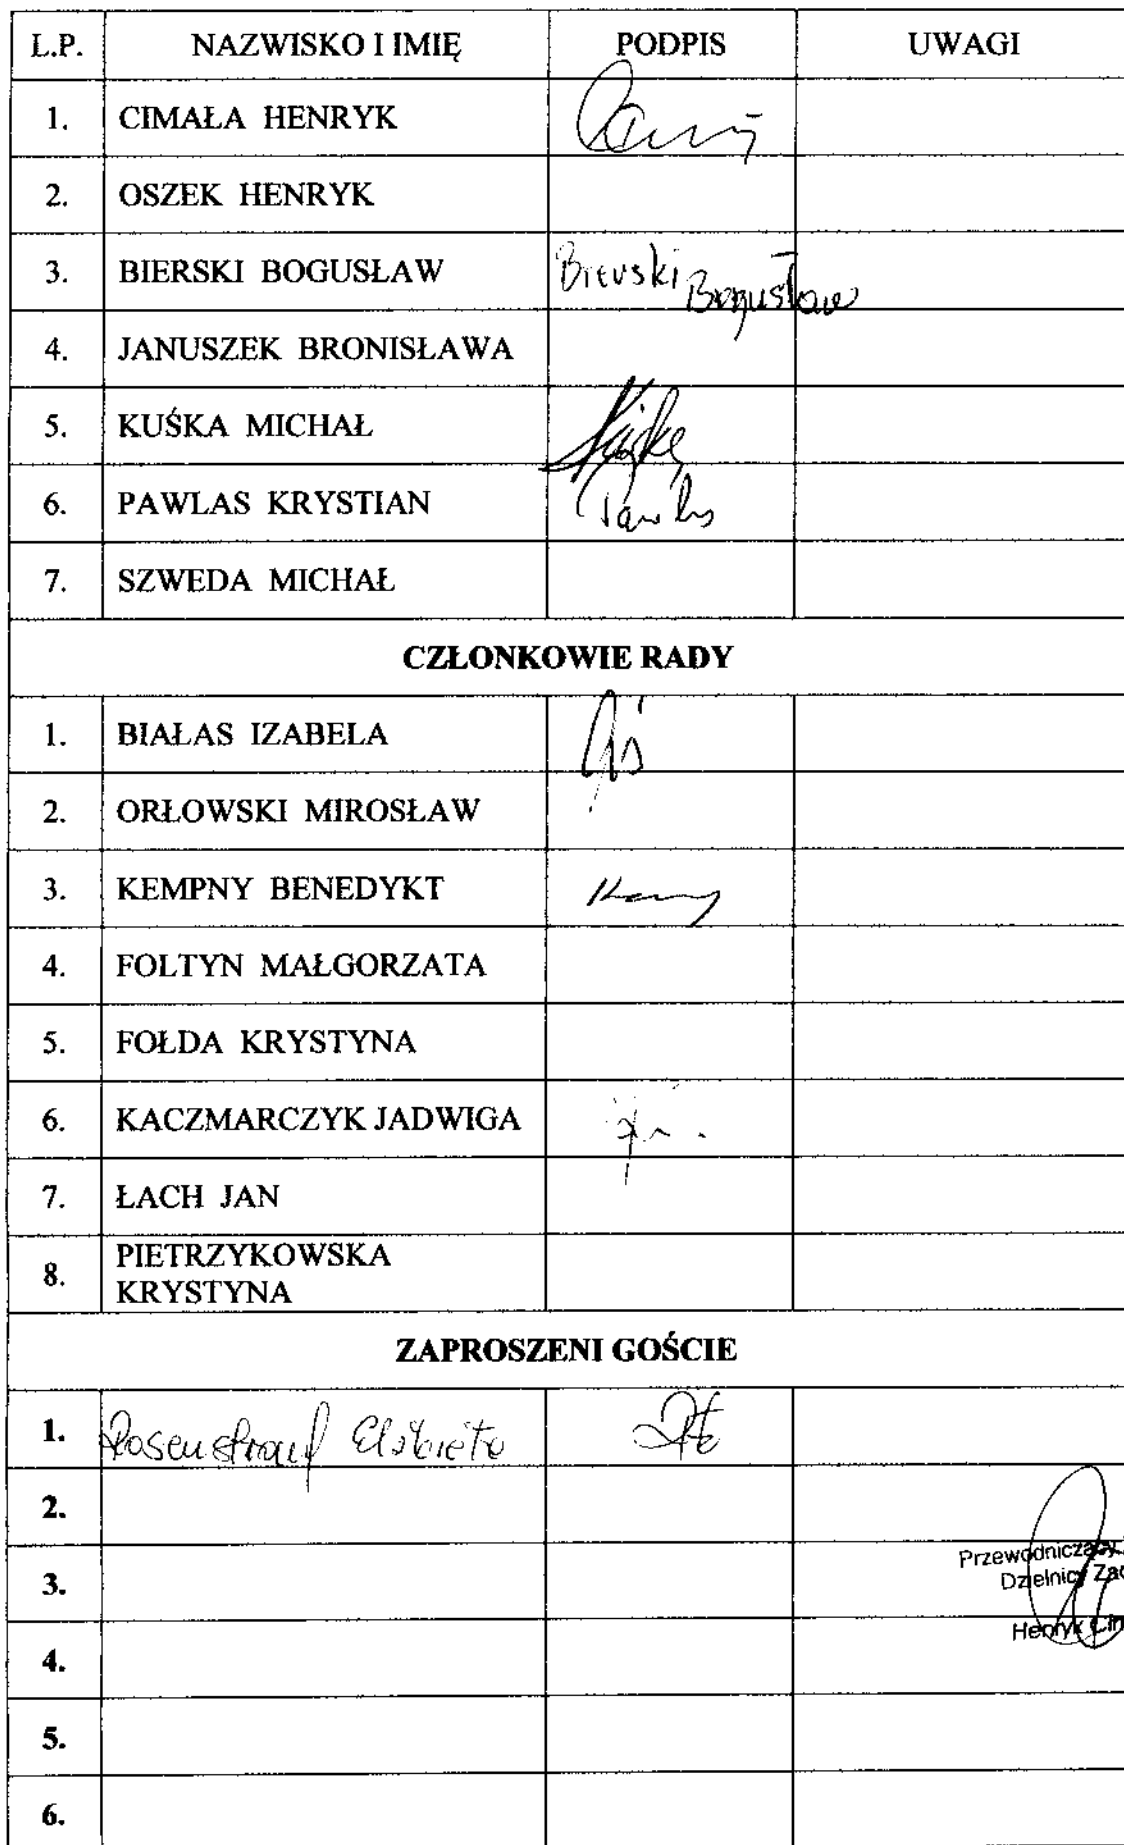 L.P. NAZWISKO I IMIĘ PODPIS UWAGI
1. CIMAŁA HENRYK
2. OSZEK HENRYK
3. BIERSKI BOGUSŁAW Bierski Bogusław
4. JANUSZEK BRONISŁAWA
5. KUŚKA MICHAŁ Kuśka
6. PAWLAS KRYSTIAN Pawlas
7. SZWEDA MICHAŁ
CZŁONKOWIE RADY
1. BIAŁAS IZABELA
2. ORŁOWSKI MIROSŁAW
3. KEMPNY BENEDYKT
4. FOLTYN MAŁGORZATA
5. FOŁDA KRYSTYNA
6. KACZMARCZYK JADWIGA
7. ŁACH JAN
8. PIETRZYKOWSKA
KRYSTYNA
ZAPROSZENI GOŚCIE
1. Elżbieta
2.
Przewodniczący
3.
Dzielnicy Zac
Henryk Cim
4.
5.
6.